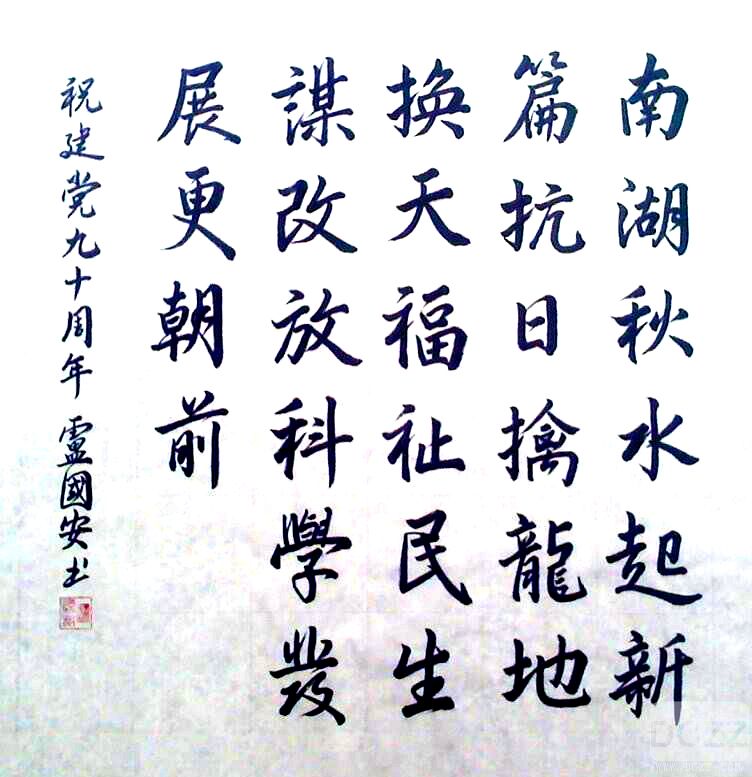 南湖秋水起新
篇抗日擒龍地
换天福祉民生
謀改放科學發
展更朝前
祝建党九十周年 盧國安书